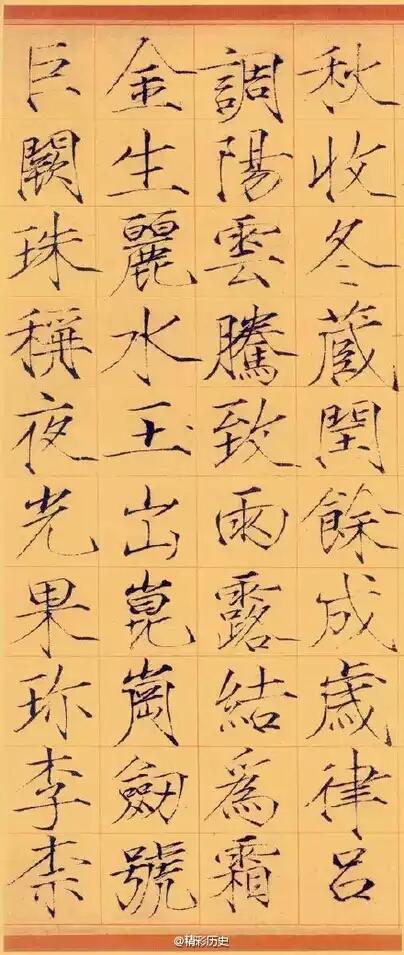 秋收冬蔵閏餘成歲律呂
調陽雲騰致雨露結爲霜
金生麗水玉出崑崗劒號
巨闕珠稱夜光果珎李柰
@精彩历史